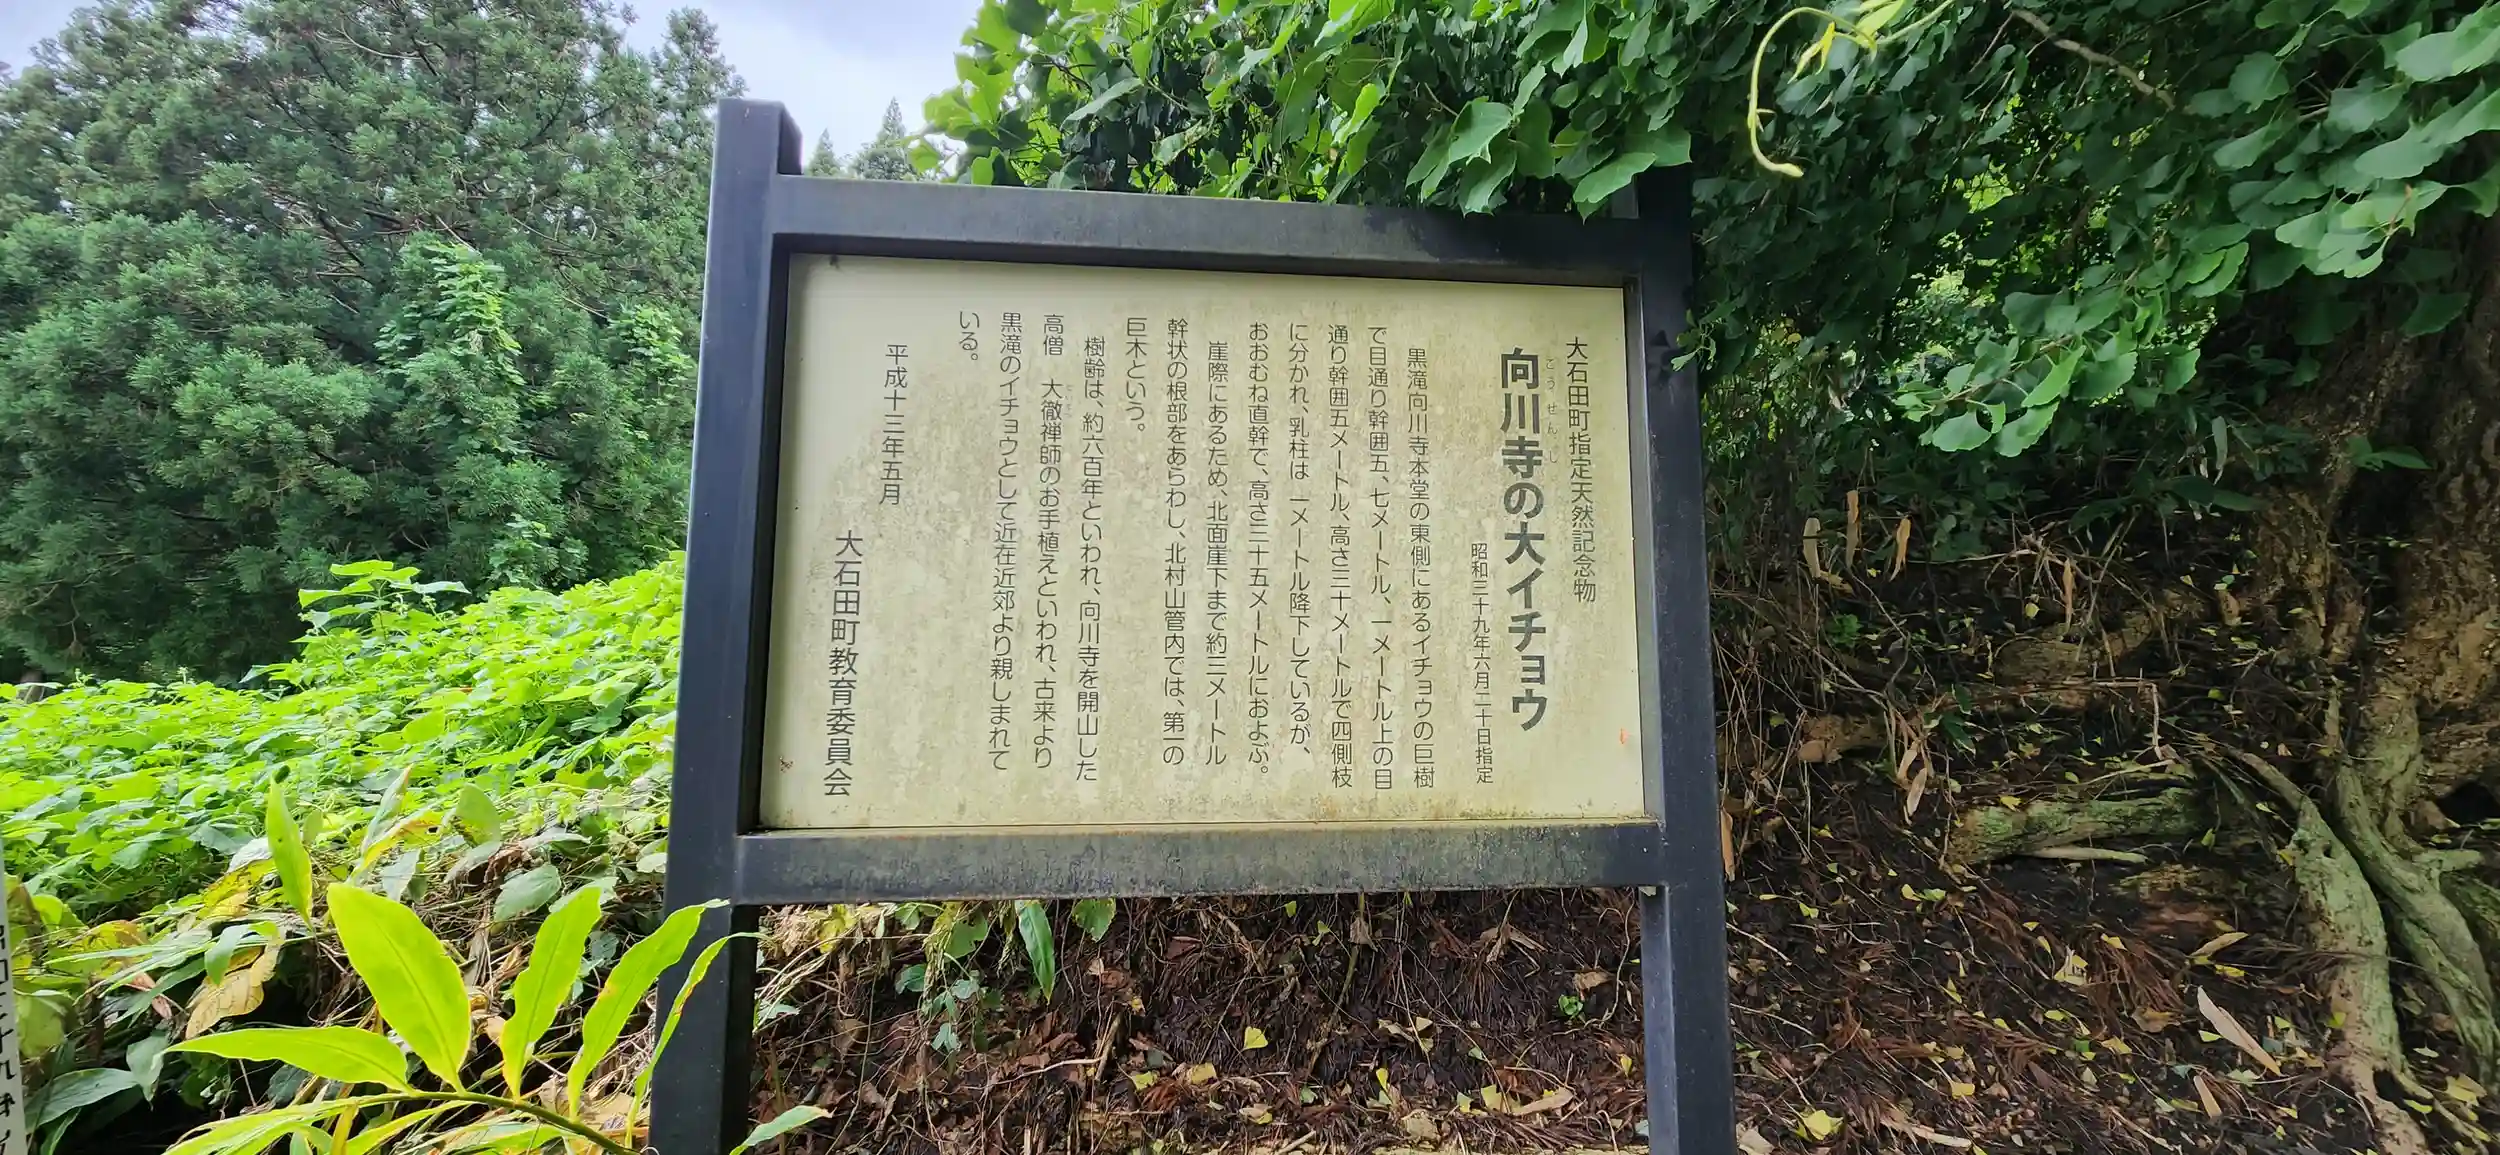 大石田町指定天然記念物
こうせんじ
向川寺の大イチョウ
昭和三十九年六月二十日指定
黒滝向川寺本堂の東側にあるイチョウの巨樹
で目通り幹囲五、七メートル、一メートル上の目
通り幹囲五メートル、高さ三十メートルで四側枝
に分かれ、乳柱は一メートル降下しているが、
おおむね直幹で、高さ三十五メートルにおよぶ。
崖際にあるため、北面崖下まで約三メートル
幹状の根部をあらわし、北村山管内では、第一の
巨木という。
樹齢は、約六百年といわれ、向川寺を開山した
高僧　大徹禅師のお手植えといわれ、古来より
黒滝のイチョウとして近在近郊より親しまれて
いる。
平成十三年五月
大石田町教育委員会